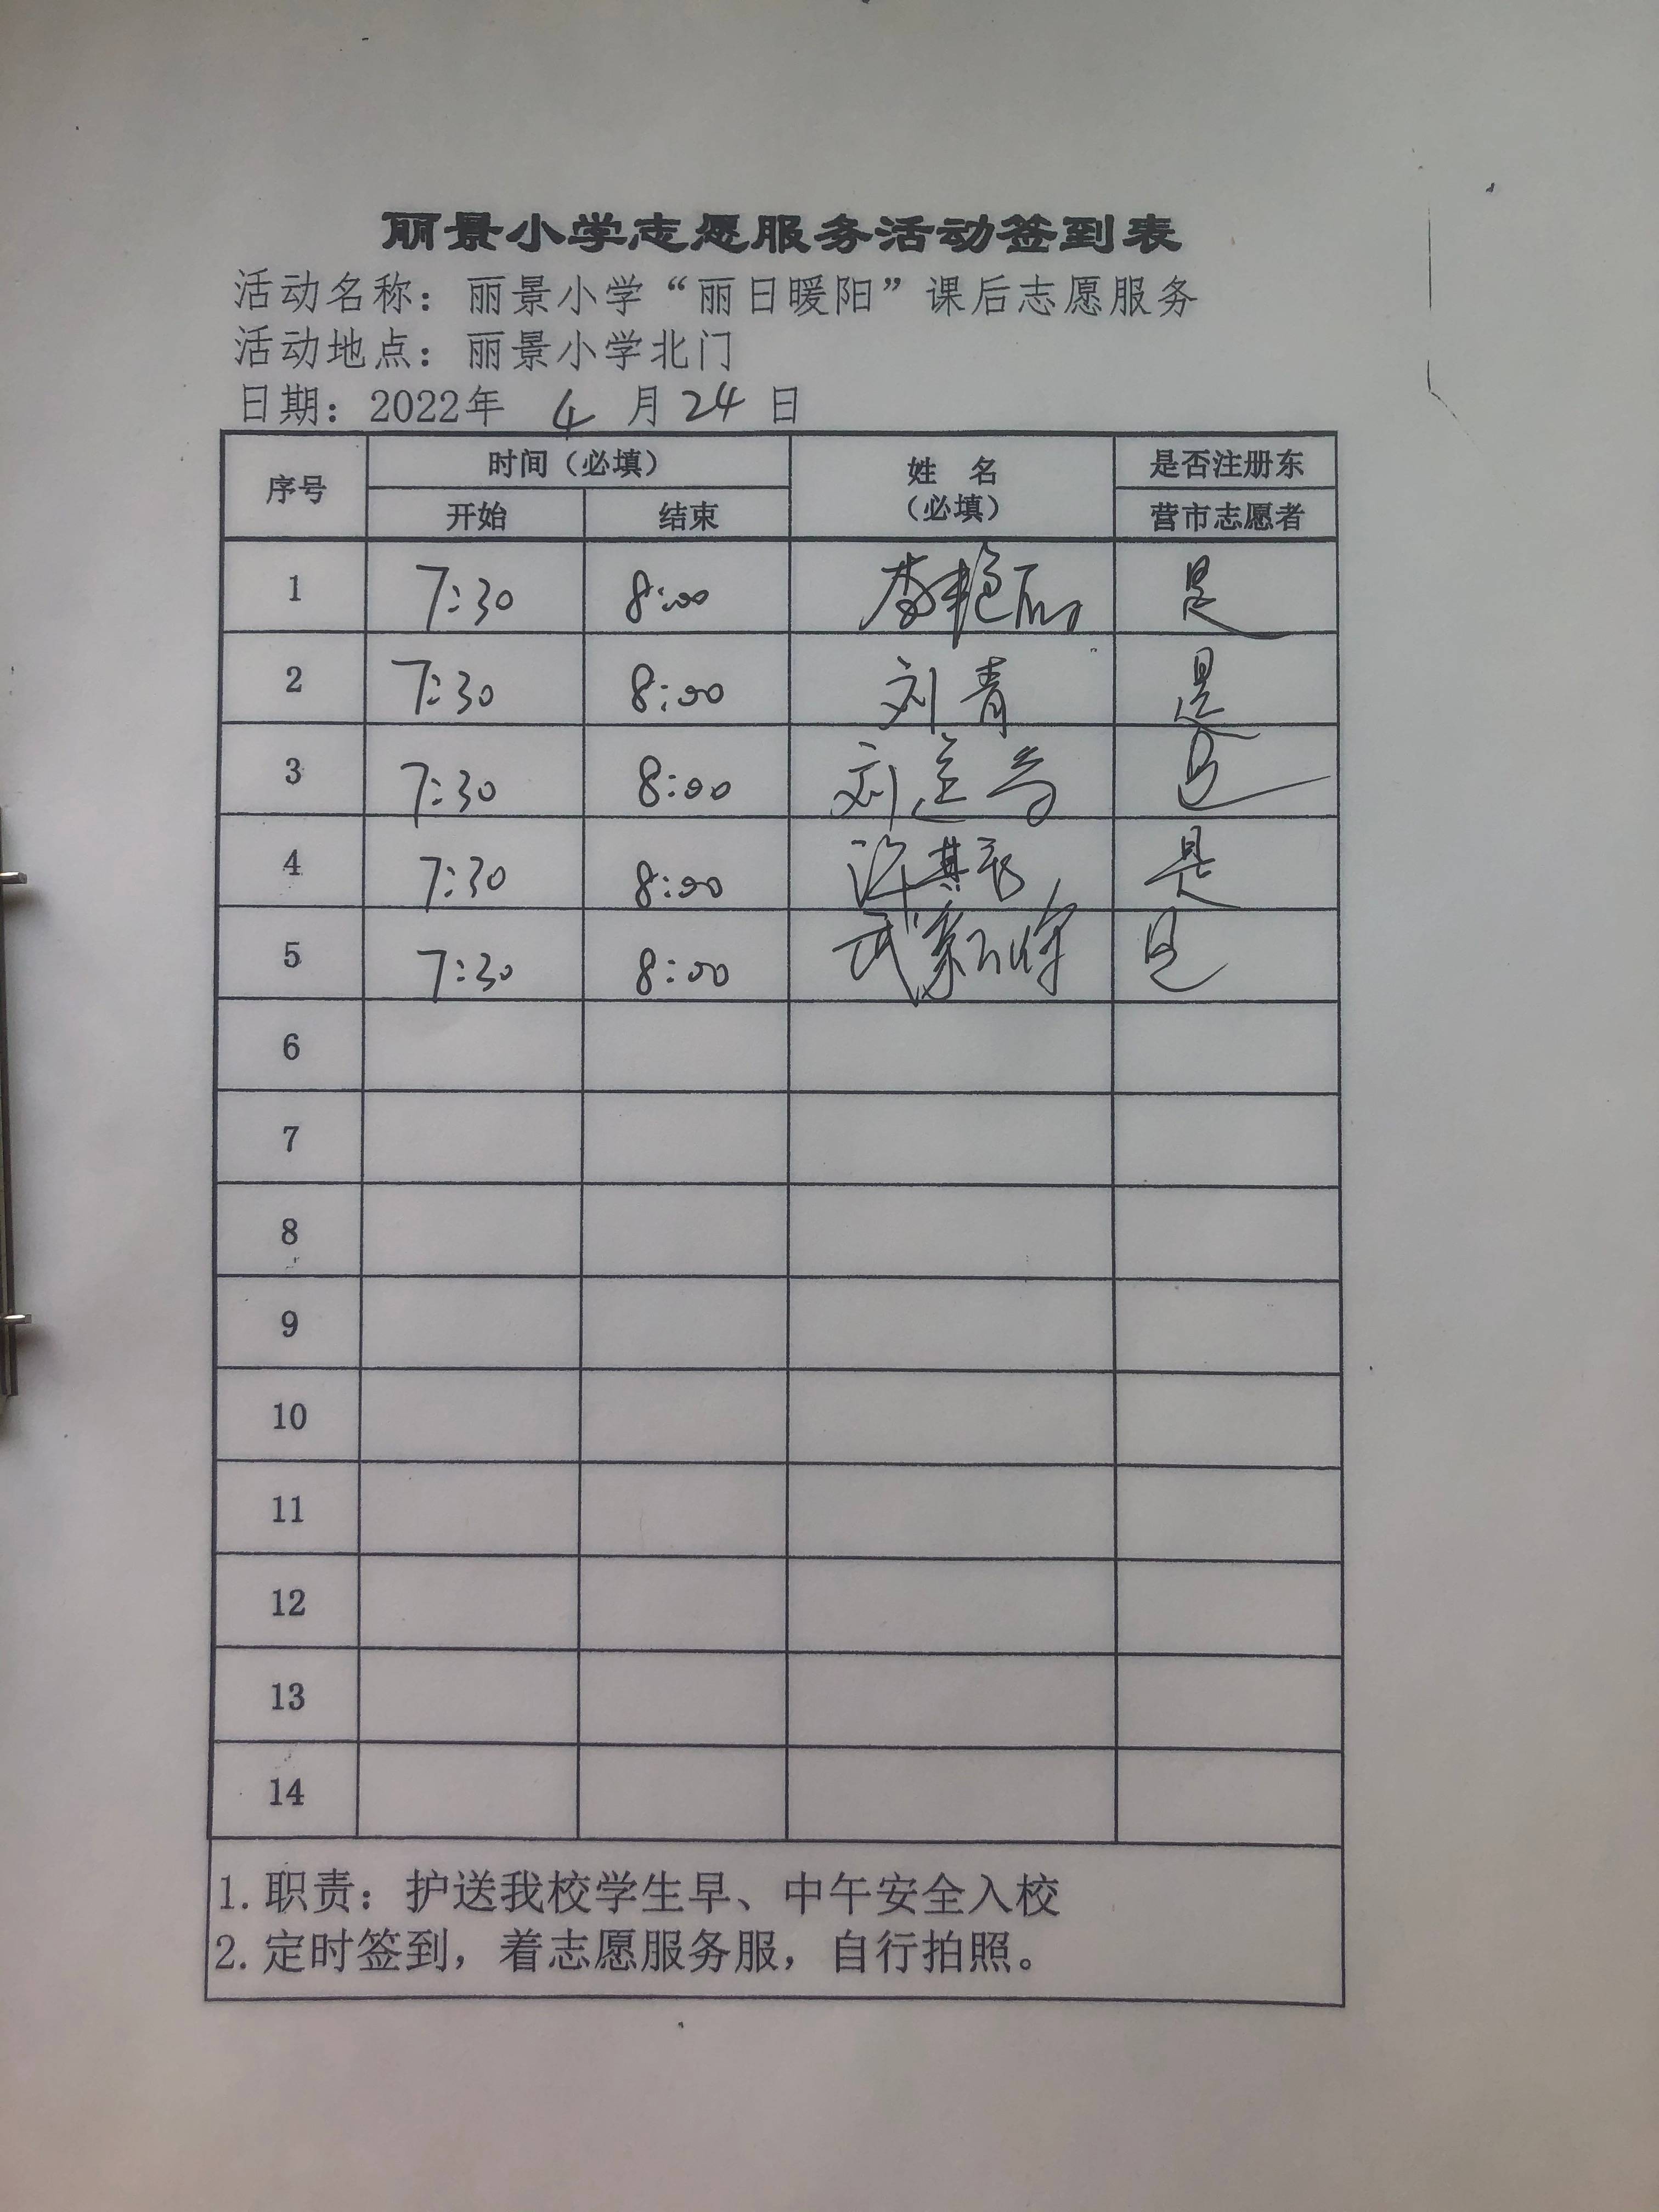 丽景小学志愿服务活动签到表
活动名称：丽景小学“丽日暖阳”课后志愿服务
活动地点：丽景小学北门
日期：2022年 4 月 24 日
序号 时间（必填） 姓 名（必填） 是否注册东营市志愿者
开始 结束
1 7:30 8:00 李艳丽 是
2 7:30 8:00 刘青 是
3 7:30 8:00 刘 是
4 7:30 8:00 许其飞 是
5 7:30 8:00 武 是
6
7
8
9
10
11
12
13
14
1.职责：护送我校学生早、中午安全入校
2.定时签到，着志愿服务服，自行拍照。